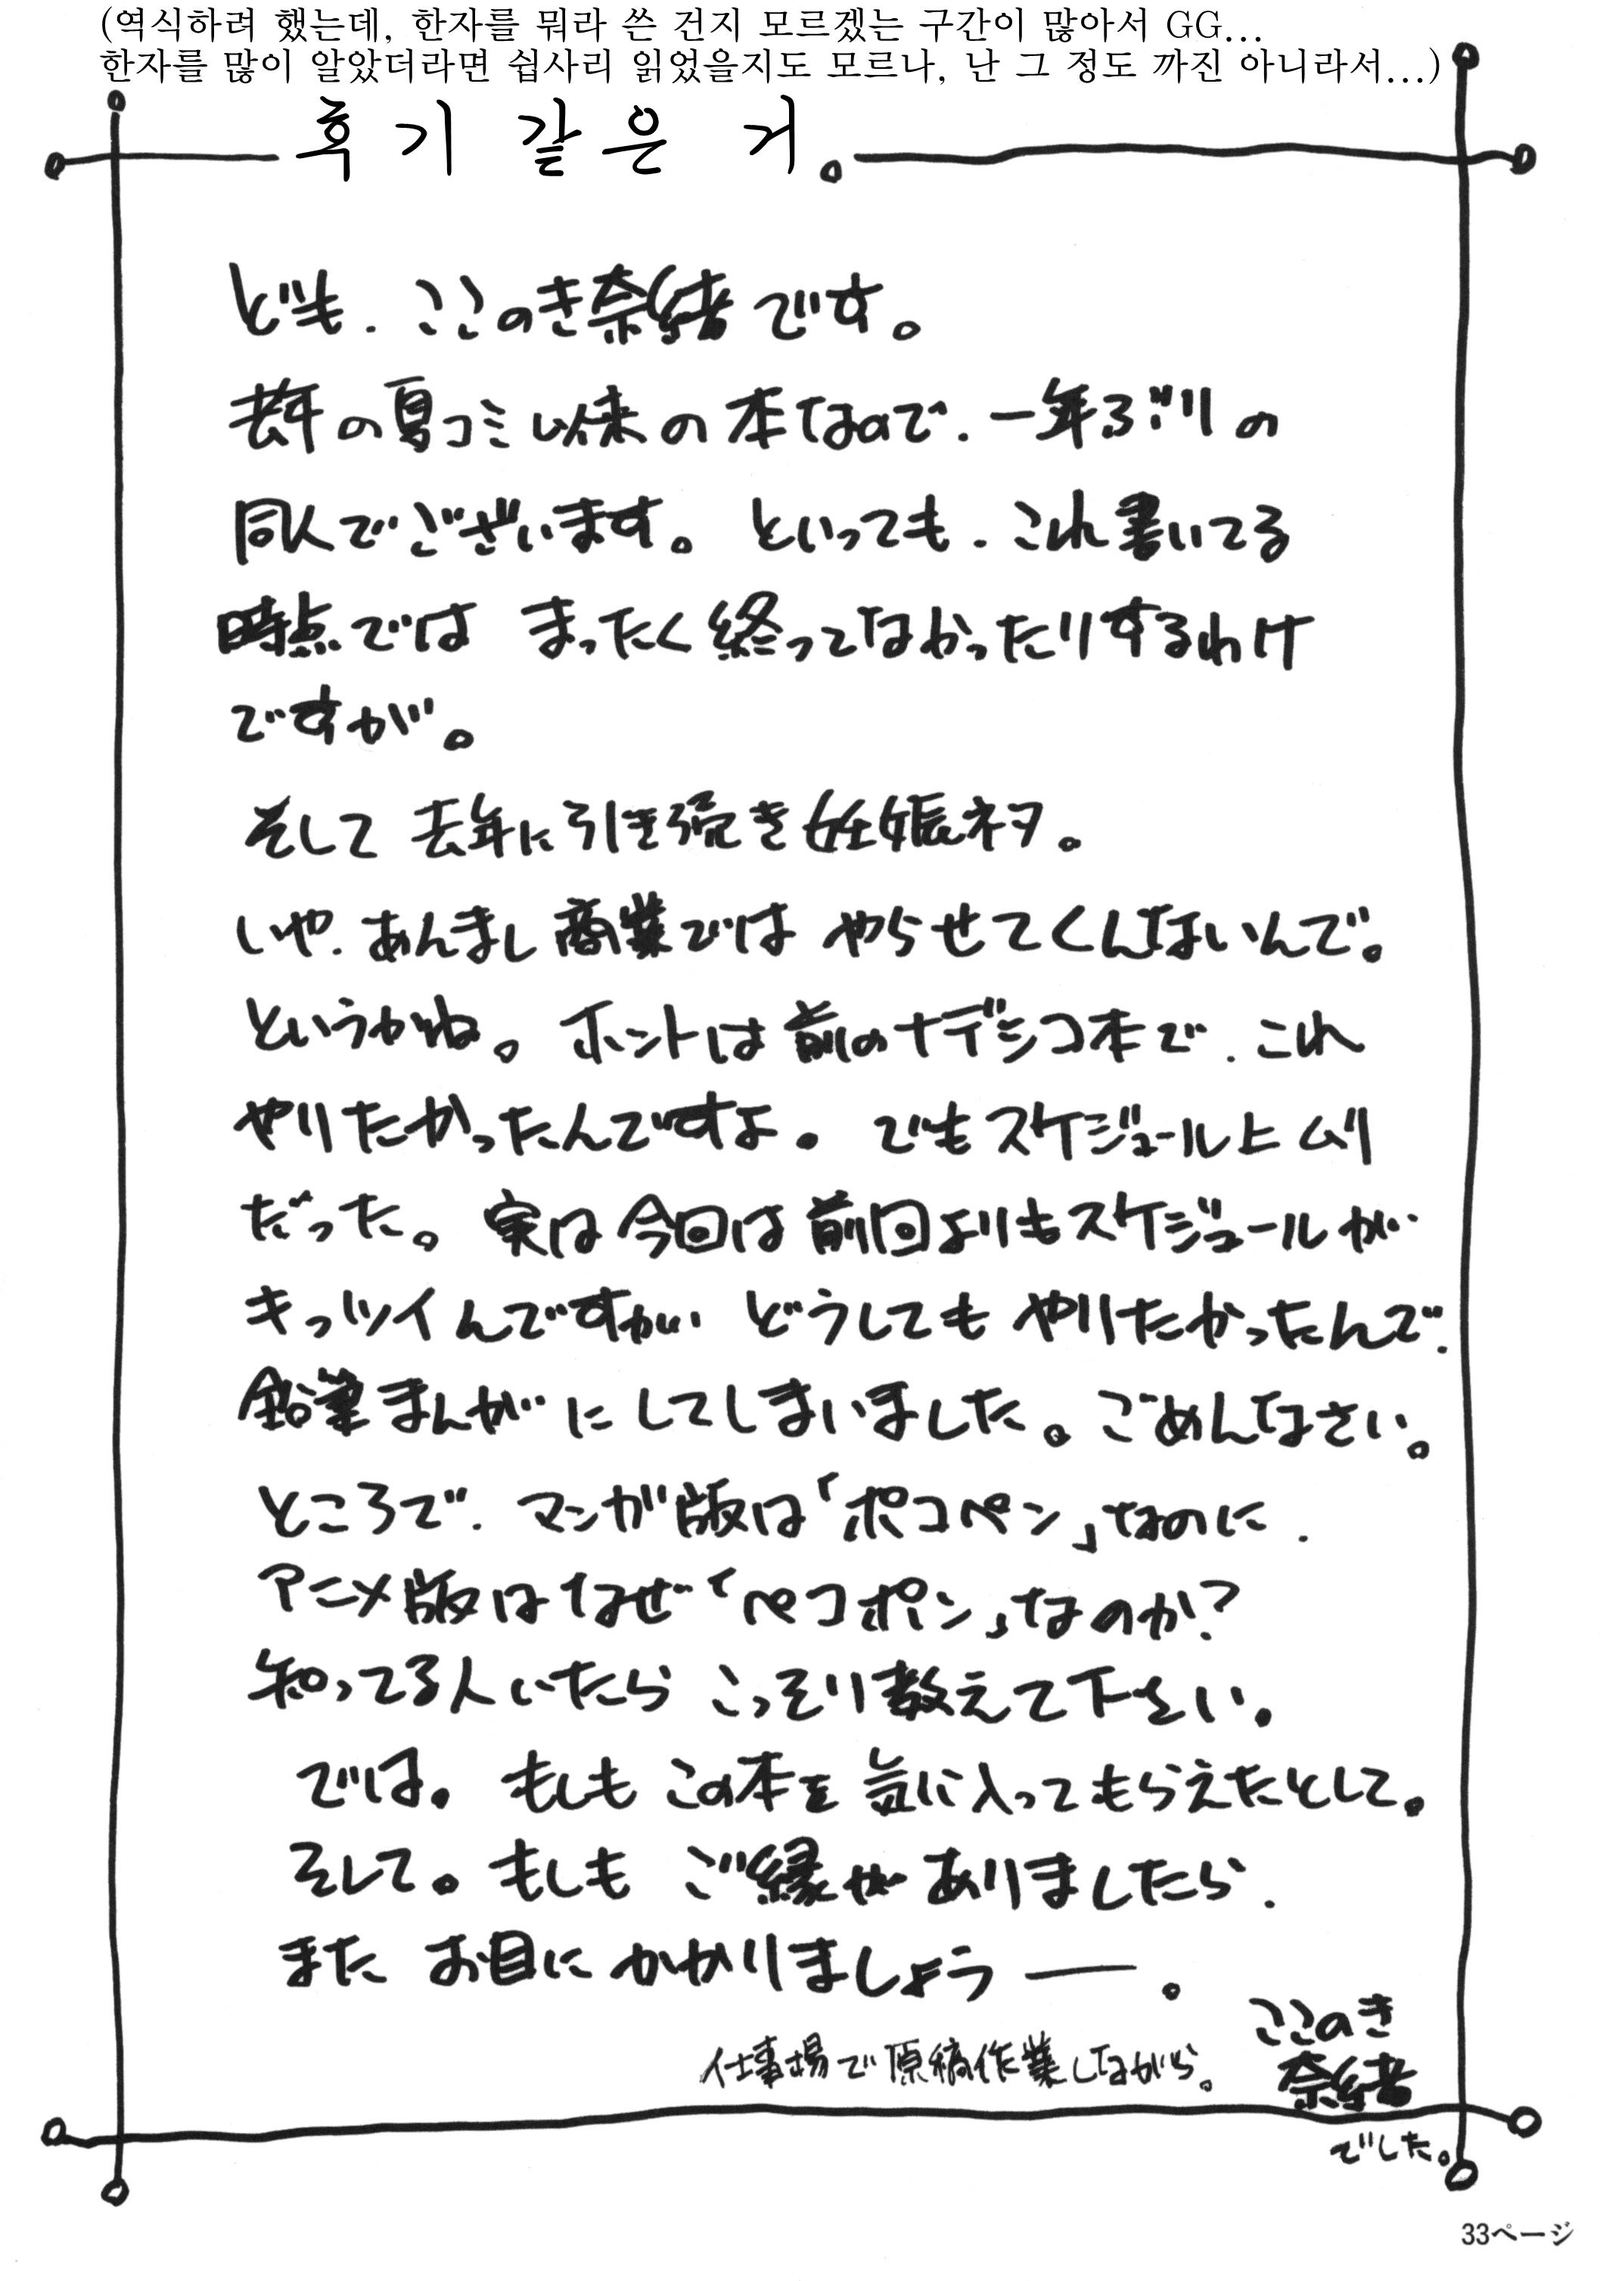 (역식하려 했는데, 한자를 뭐라 쓴 건지 모르겠는 구간이 많아서 GG...
한자를 많이 알았더라면 쉽사리 읽었을지도 모르나, 난 그 정도 까진 아니라서...)
후기 같은 거。
ども、ここのき奈緒です。
去年の夏コミ以来の本なので、一年ぶりの
同人でございます。といっても、これ書いてる
時点では まったく終ってなかったりするわけ
ですが。
そして 去年に引き続き妊娠ネタ。
いや、あんまし商業では やらせてくんないんで。
というかね。ホントは前のナデシコ本で、これ
やりたかったんですよ。でもスケジュール上ムリ
だった。実は今回は前回よりもスケジュールが
キっツイんですがい どうしても やりたかったんで、
鉛筆まんがにしてしまいました。ごめんなさい。
ところで、マンガ版は「ポコペン」なのに、
アニメ版はなぜ「ペコポン」なのか?
知ってる人いたら こっそり教えて下さい。
では。もしも この本を 気に入ってもらえたとして。
そして。もしも ご縁がありましたら、
また お目にかかりましょうー。
仕事場で原稿作業しながら。
ここのき
奈緒
でした。
33ページ